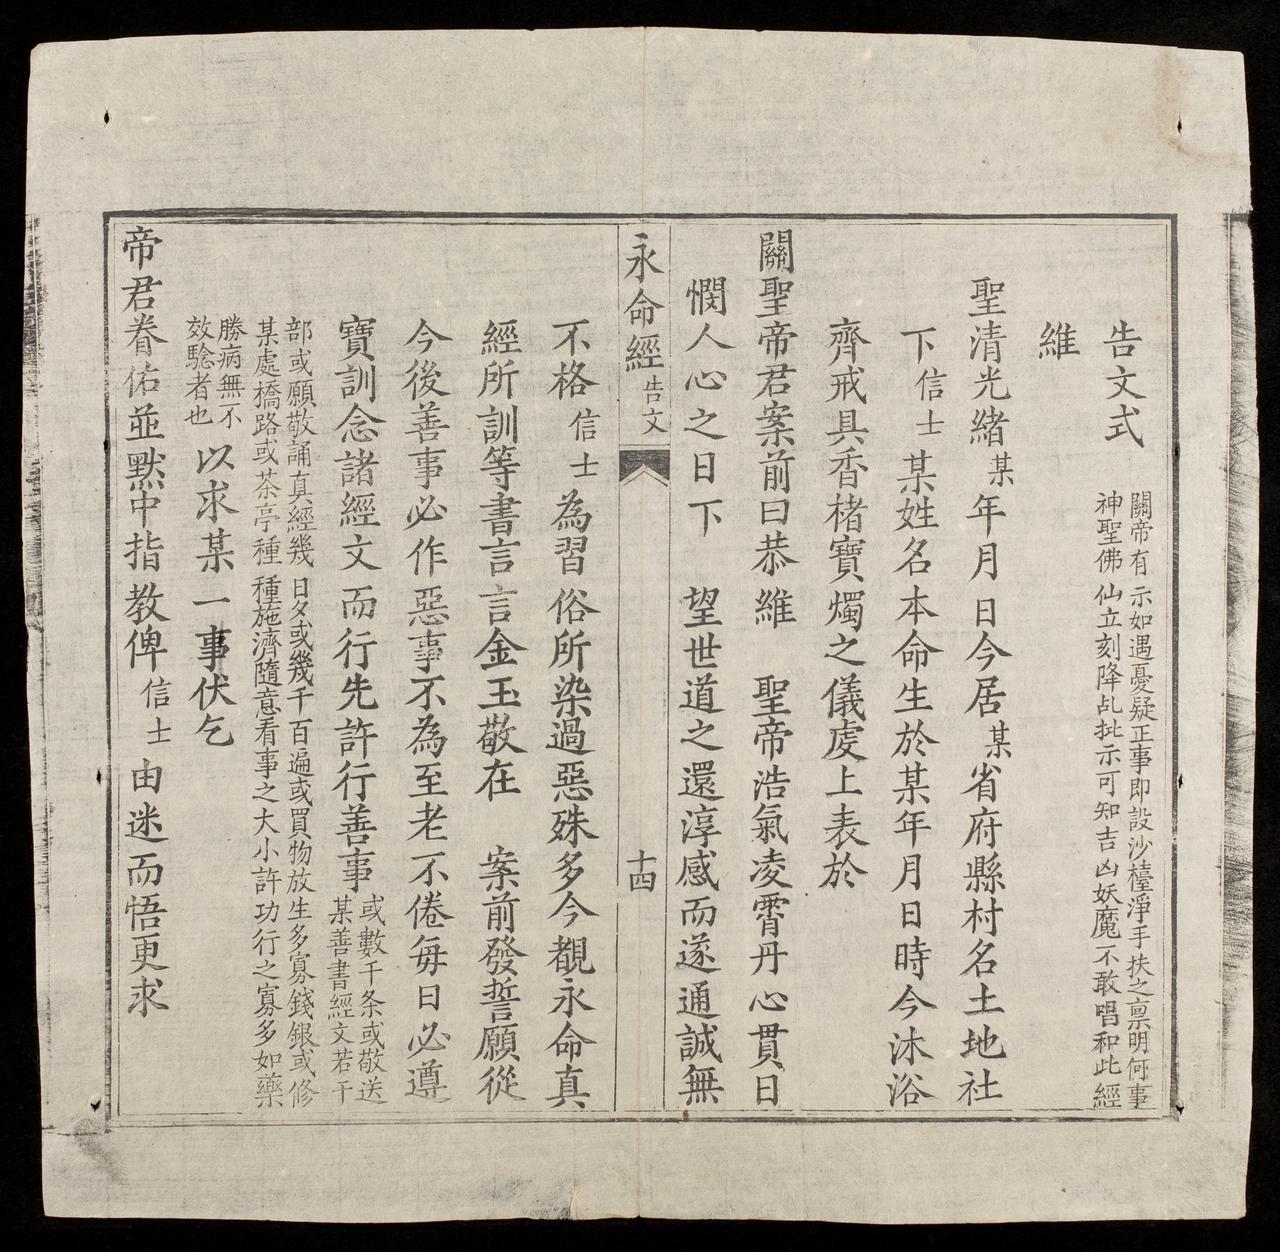 告文式
關帝有示如遇憂疑正事即設沙檯淨手扶之禀明何事
神聖佛仙立刻降乩批示可知吉凶妖魔不敢唱和此經
維
聖清光緒某年月日今居某省府縣村名土地社
下信士某姓名本命生於某年月日時今沐浴
齊戒具香楮寶燭之儀虔上表於
關聖帝君案前曰恭維 聖帝浩氣凌霄丹心貫日
憫人心之日下 望世道之還淳感而遂通誠無
永命經 告文 十四
不格信士為習俗所染過惡殊多今覩永命真
經所訓等書言言金玉敬在 案前發誓願從
今後善事必作惡事不為至老不倦每日必遵
寶訓念諸經文而行先許行善事
或數千条或敬送
某善書經文若干
部或願敬誦真經幾日夕或幾千百遍或買物放生多寡錢銀或修
某處橋路或茶亭種種施濟隨意看事之大小許功行之寡多如藥
勝病無不
效騐者也
以求某一事伏乞
帝君眷佑並默中指教俾信士由迷而悟更求